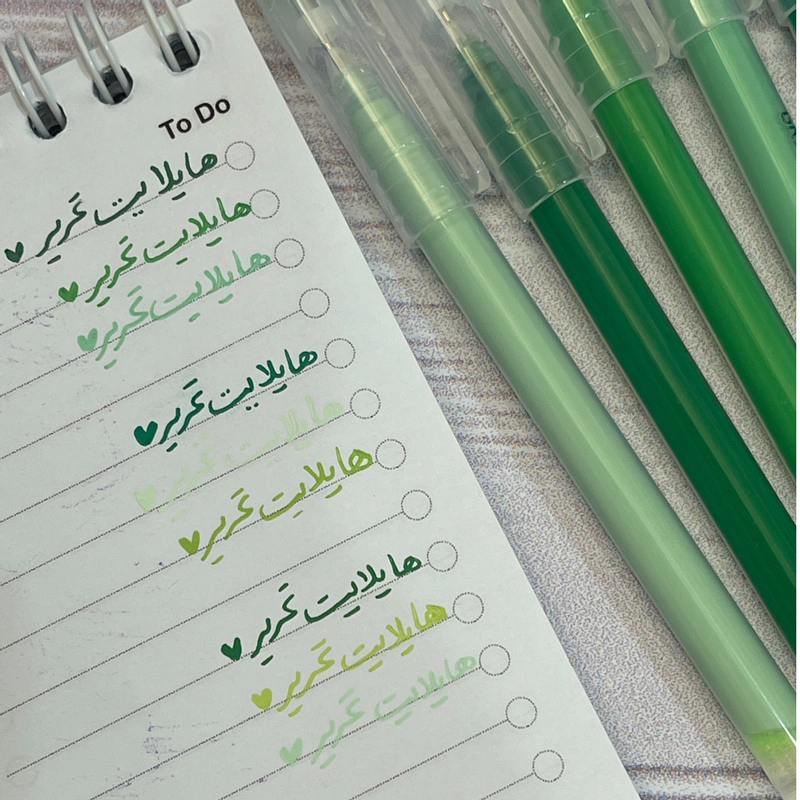 To Do
هایلایت تحریر
هایلایت تحریر
هایلایت تحریر
هایلایت تحریر
هایلایت تحریر
هایلایت تحریر
هایلایت تحریر
هایلایت تحریر
هایلایت تحریر